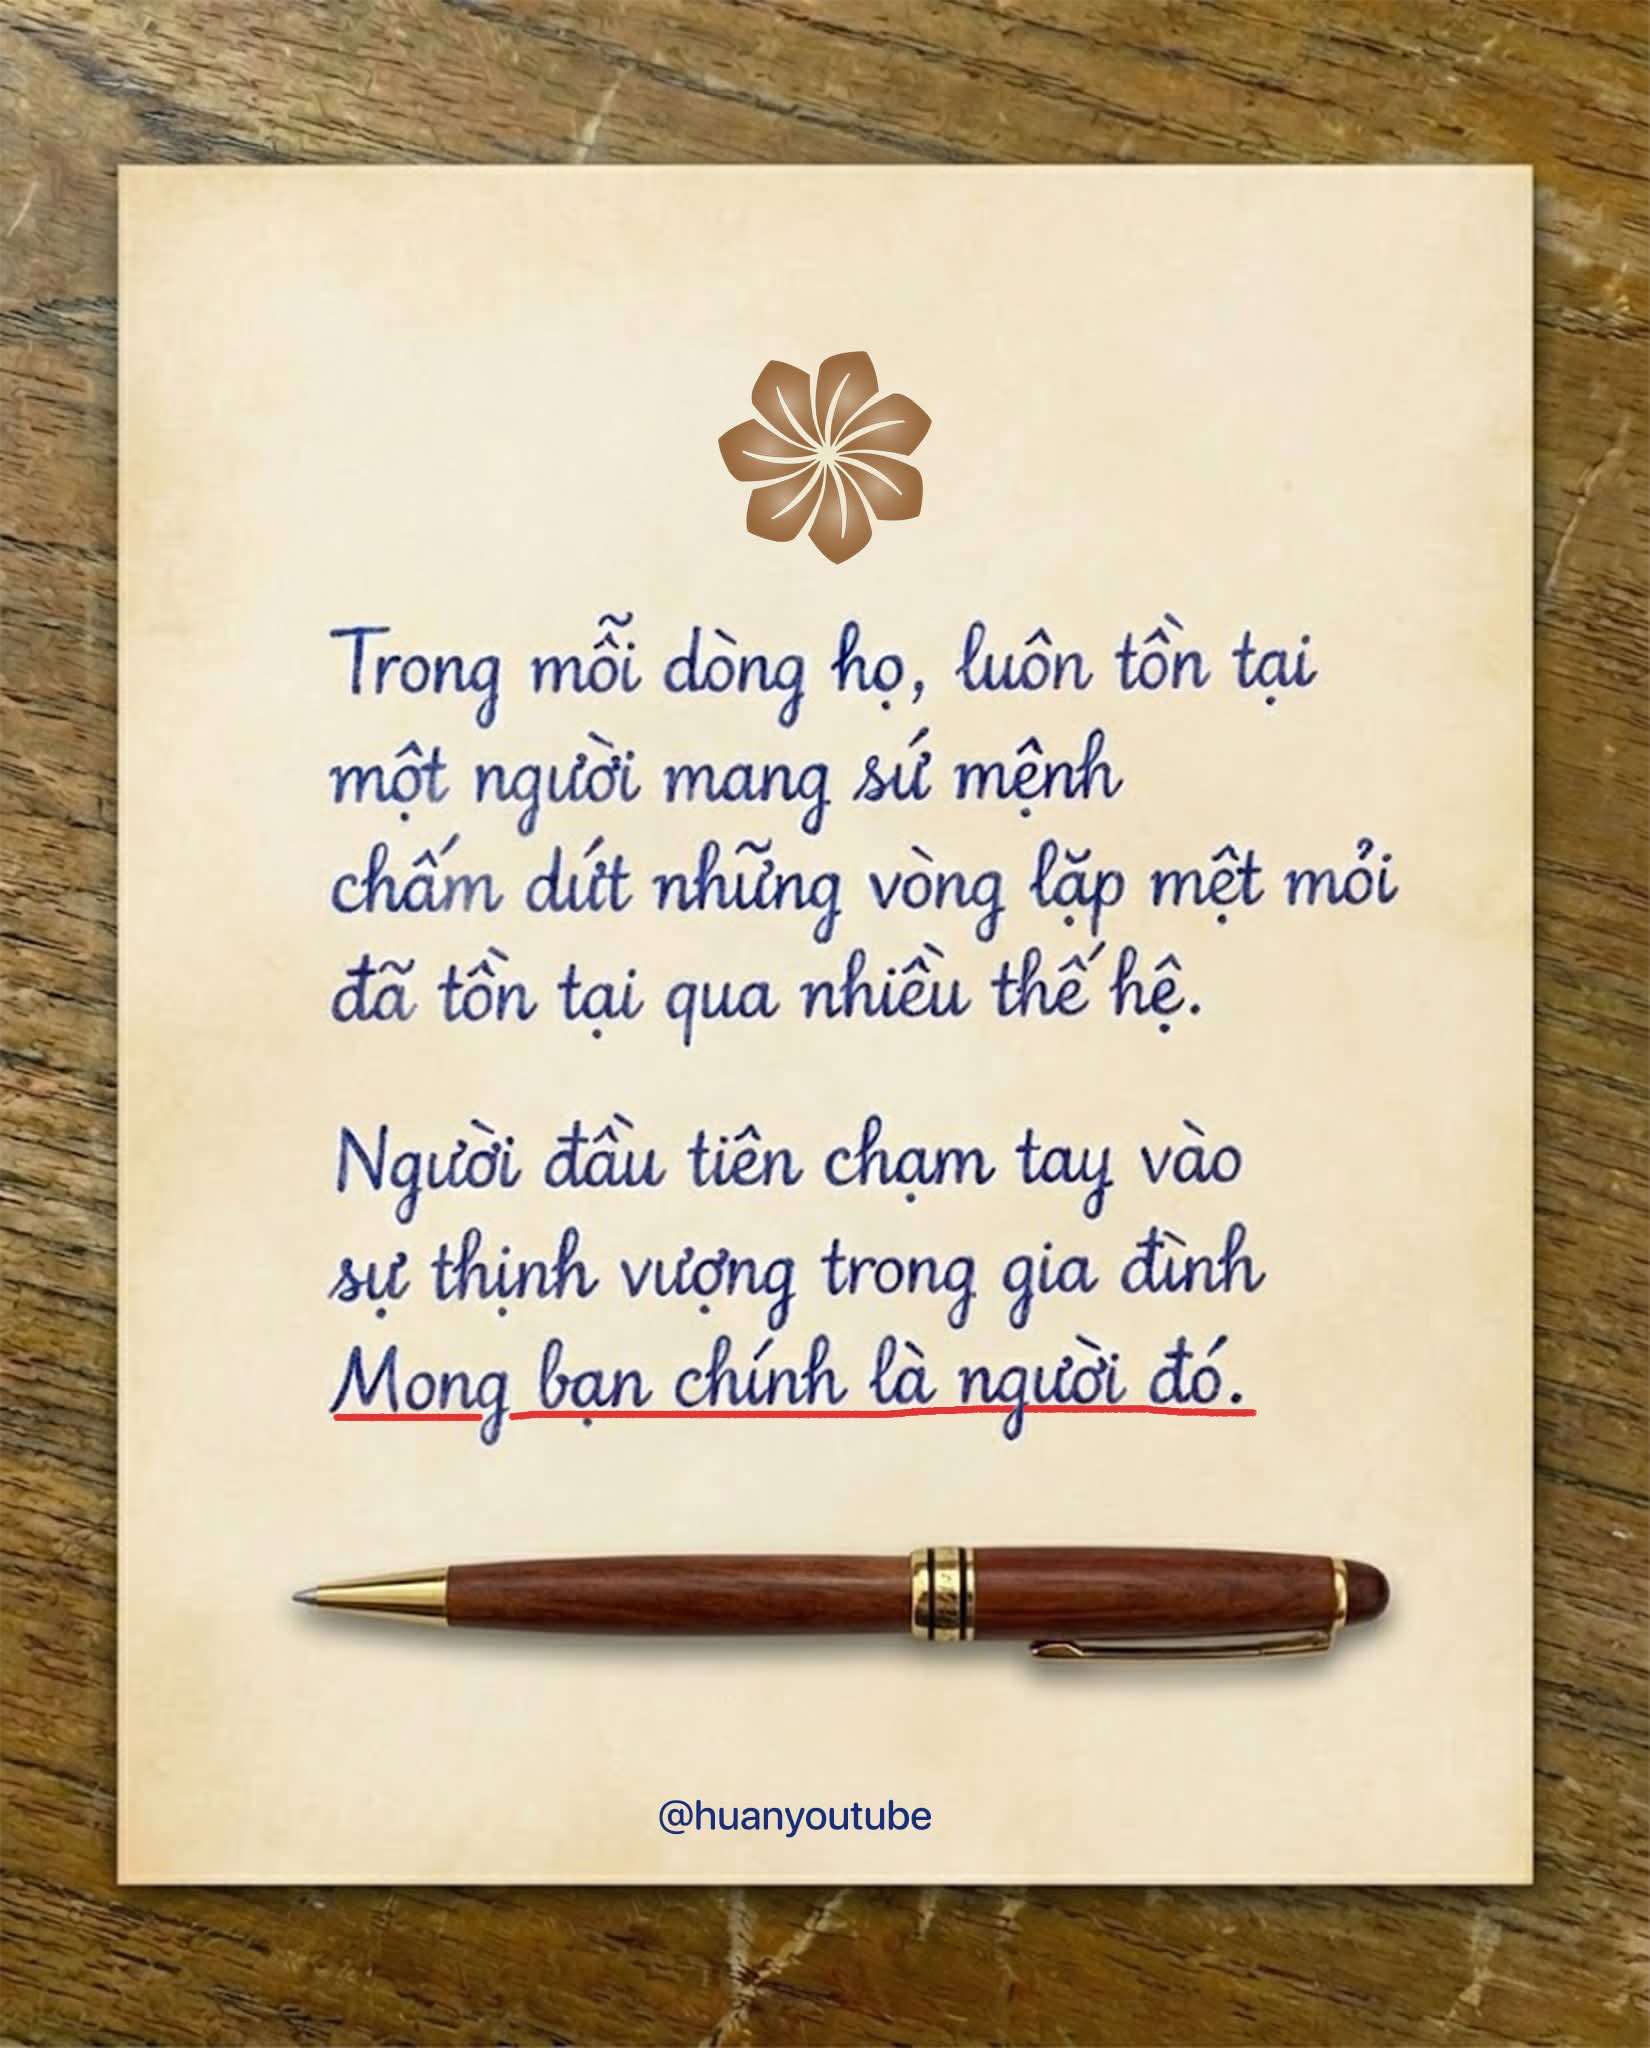 Trong mỗi dòng họ, luôn tồn tại
một người mang sứ mệnh
chấm dứt những vòng lặp mệt mỏi
đã tồn tại qua nhiều thế hệ.
Người đầu tiên chạm tay vào
sự thịnh vượng trong gia đình
Mong bạn chính là người đó.
@huanyoutube